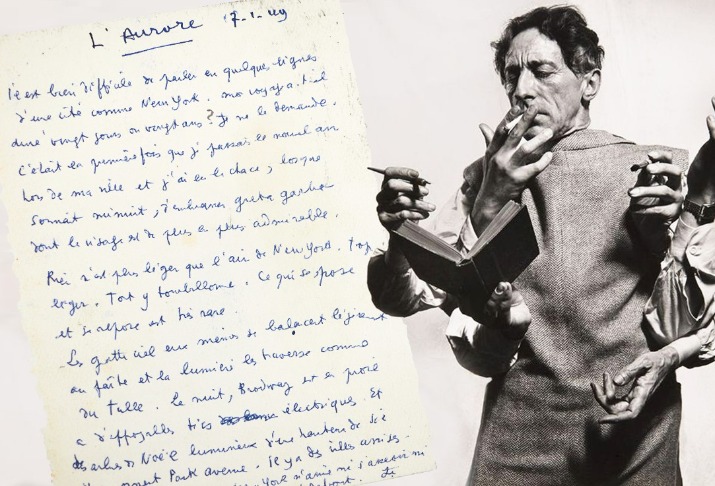 L'Aurore 7-1-49
il est bien difficile de parler en quelques lignes
d'une cité comme New York. mon voyage a-t-il
duré vingt jours ou vingt ans ? Je me le demande.
C'était la première fois que je passais le nouvel an
hors de ma ville et j'ai eu la chance, lorsque
sonnait minuit, d'embrasser greta garbo
dont le visage est de plus en plus admirable.
Rien n'est plus léger que l'air de New York. trop
léger. Tout y tourbillonne. Ce qui se pose
et se repose est très rare.
Les gratte ciel eux mêmes se balancent légèrement
au faîte et la lumière les traverse comme
du tulle. La nuit, Brodway est en proie
a d'effroyables tics électriques. Et
des arbres de Noël lumineux d'une hauteur de
Park avenue. il y a des villes assises
York n'aime ni s'asseoir ni